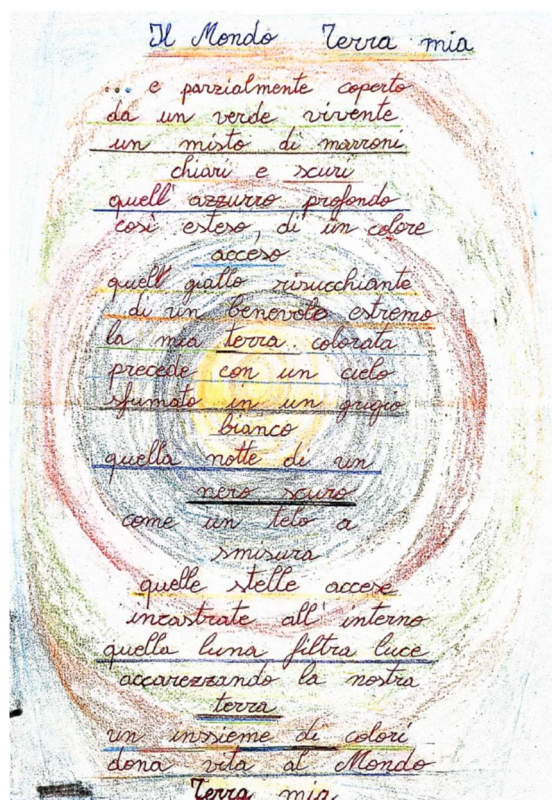 Il Mondo Terra mia
... e parzialmente coperto
da un verde vivente
un misto di marroni
chiari e scuri
quell' azzurro profondo
così esteso, di un colore
acceso
quell giallo risucchiante
di un benevolo estremo
la mia terra colorata
precede con un cielo
sfumato in un grigio
bianco
quella notte di un
nero scuro
come un telo a
smisura
quelle stelle accese
incastrate all' interno
quella luna filtra luce
accarezzando la nostra
terra
un inssieme di colori
dona vita al Mondo
Terra mia